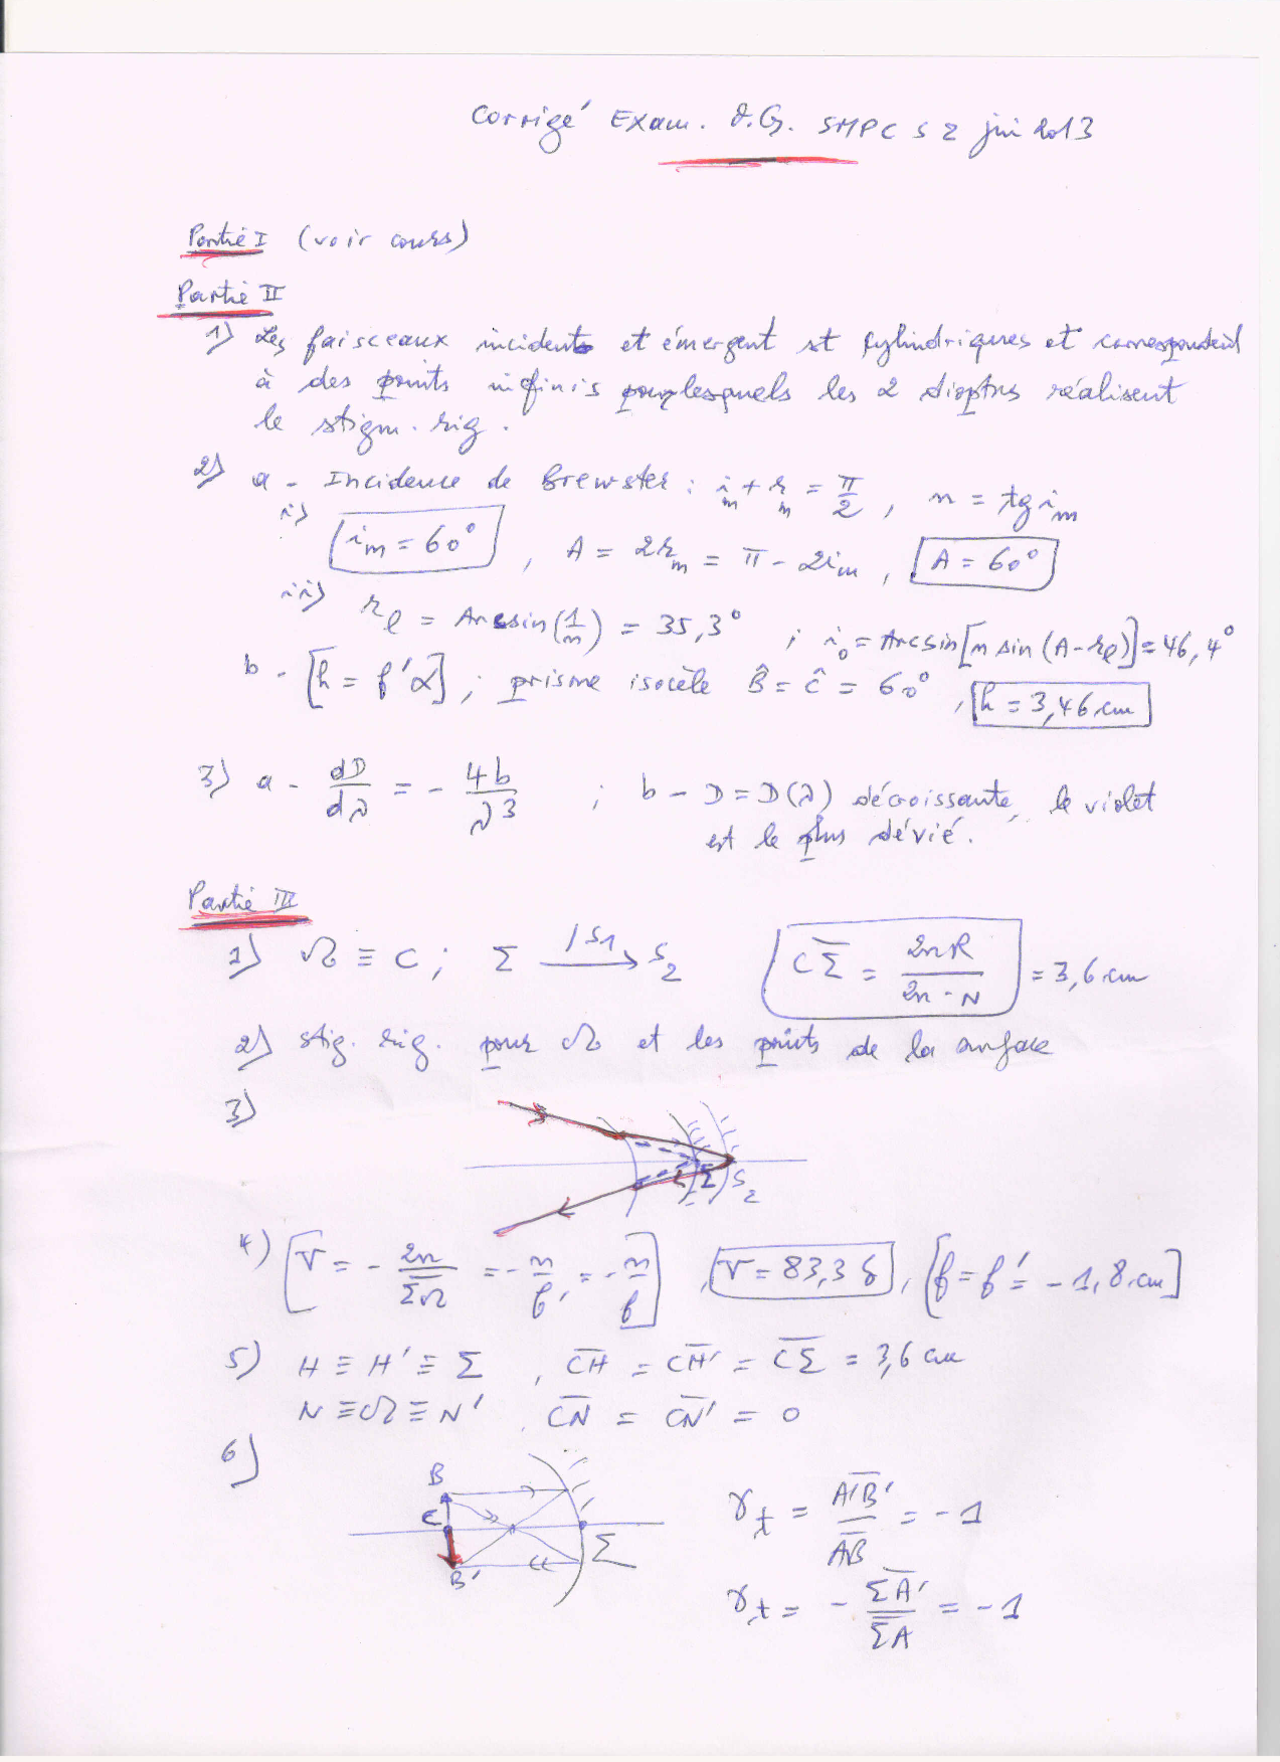 Corrigé Exam. O.G. SMPC S2 juin 2013
Partie I (voir cours)
Partie II
1) Les faisceaux incident et émergent st cylindriques et correspondent
à des points infinis pour lesquels les 2 dioptres réalisent
le stigm. rig.
2) a - Incidence de Brewster : i_m + r_m = π/2 , n = tg i_m
i) i_m = 60° , A = 2r_m = π - 2i_m , A = 60°
ii) r_l = Arcsin(1/n) = 35,3° ; i_0 = Arcsin[n sin(A-r_l)] = 46,4°
b - [h = f'α] ; prisme isocèle B̂ = Ĉ = 60° , h = 3,46 cm
3) a - dD/dλ = - 4b/λ³ ; b - D = D(λ) décroissante, le violet
est le plus dévié.
Partie III
1) Ω ≡ C ; Σ →/S1 S2 CΣ = 2nR/(2n - N) = 3,6 cm
2) stig. rig. pour Ω et les points de la surface
3)
Σ S2
4) [V = - 2n/ΣΩ = - n/f' = - n/f] , V = 83,3 δ , [f = f' = -1,8 cm]
5) H ≡ H' ≡ Σ , CH = CH' = CΣ = 3,6 cm
N ≡ Ω ≡ N' , CN = CN' = 0
6)
B
C
Σ
B'
γ_t = A'B'/AB = -1
γ_t = - ΣA'/ΣA = -1